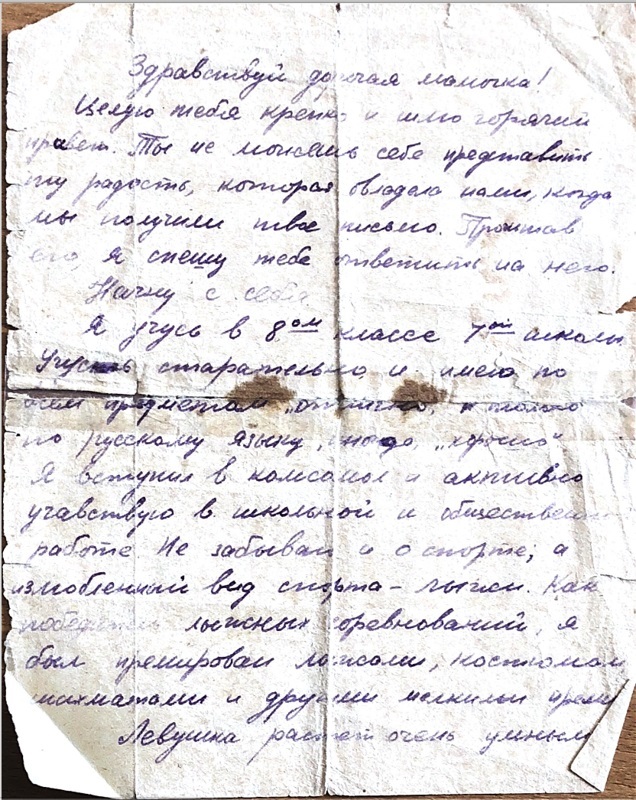 Здравствуй дорогая мамочка!
Целую тебя крепко и шлю горячий
привет. Ты не можешь себе представить
ту радость, которая овладела нами, когда
мы получили твое письмо. Прочитав
его, я спешу тебе ответить на него.
Начну с себя.
Я учусь в 8ом классе 7ой школы
Учусь старательно и имею по
всем предметам „отлично, и только
по русскому языку, иногда, „хорошо"
Я вступил в комсомол и активно
учавствую в школьной и общественной
работе. Не забываю и о спорте, а
излюбленный вид спорта – лыжи. Как
победитель лыжных соревнований, я
был премирован лыжами, костюмом
шахматами и другими мелкими
Левушка растет очень умным